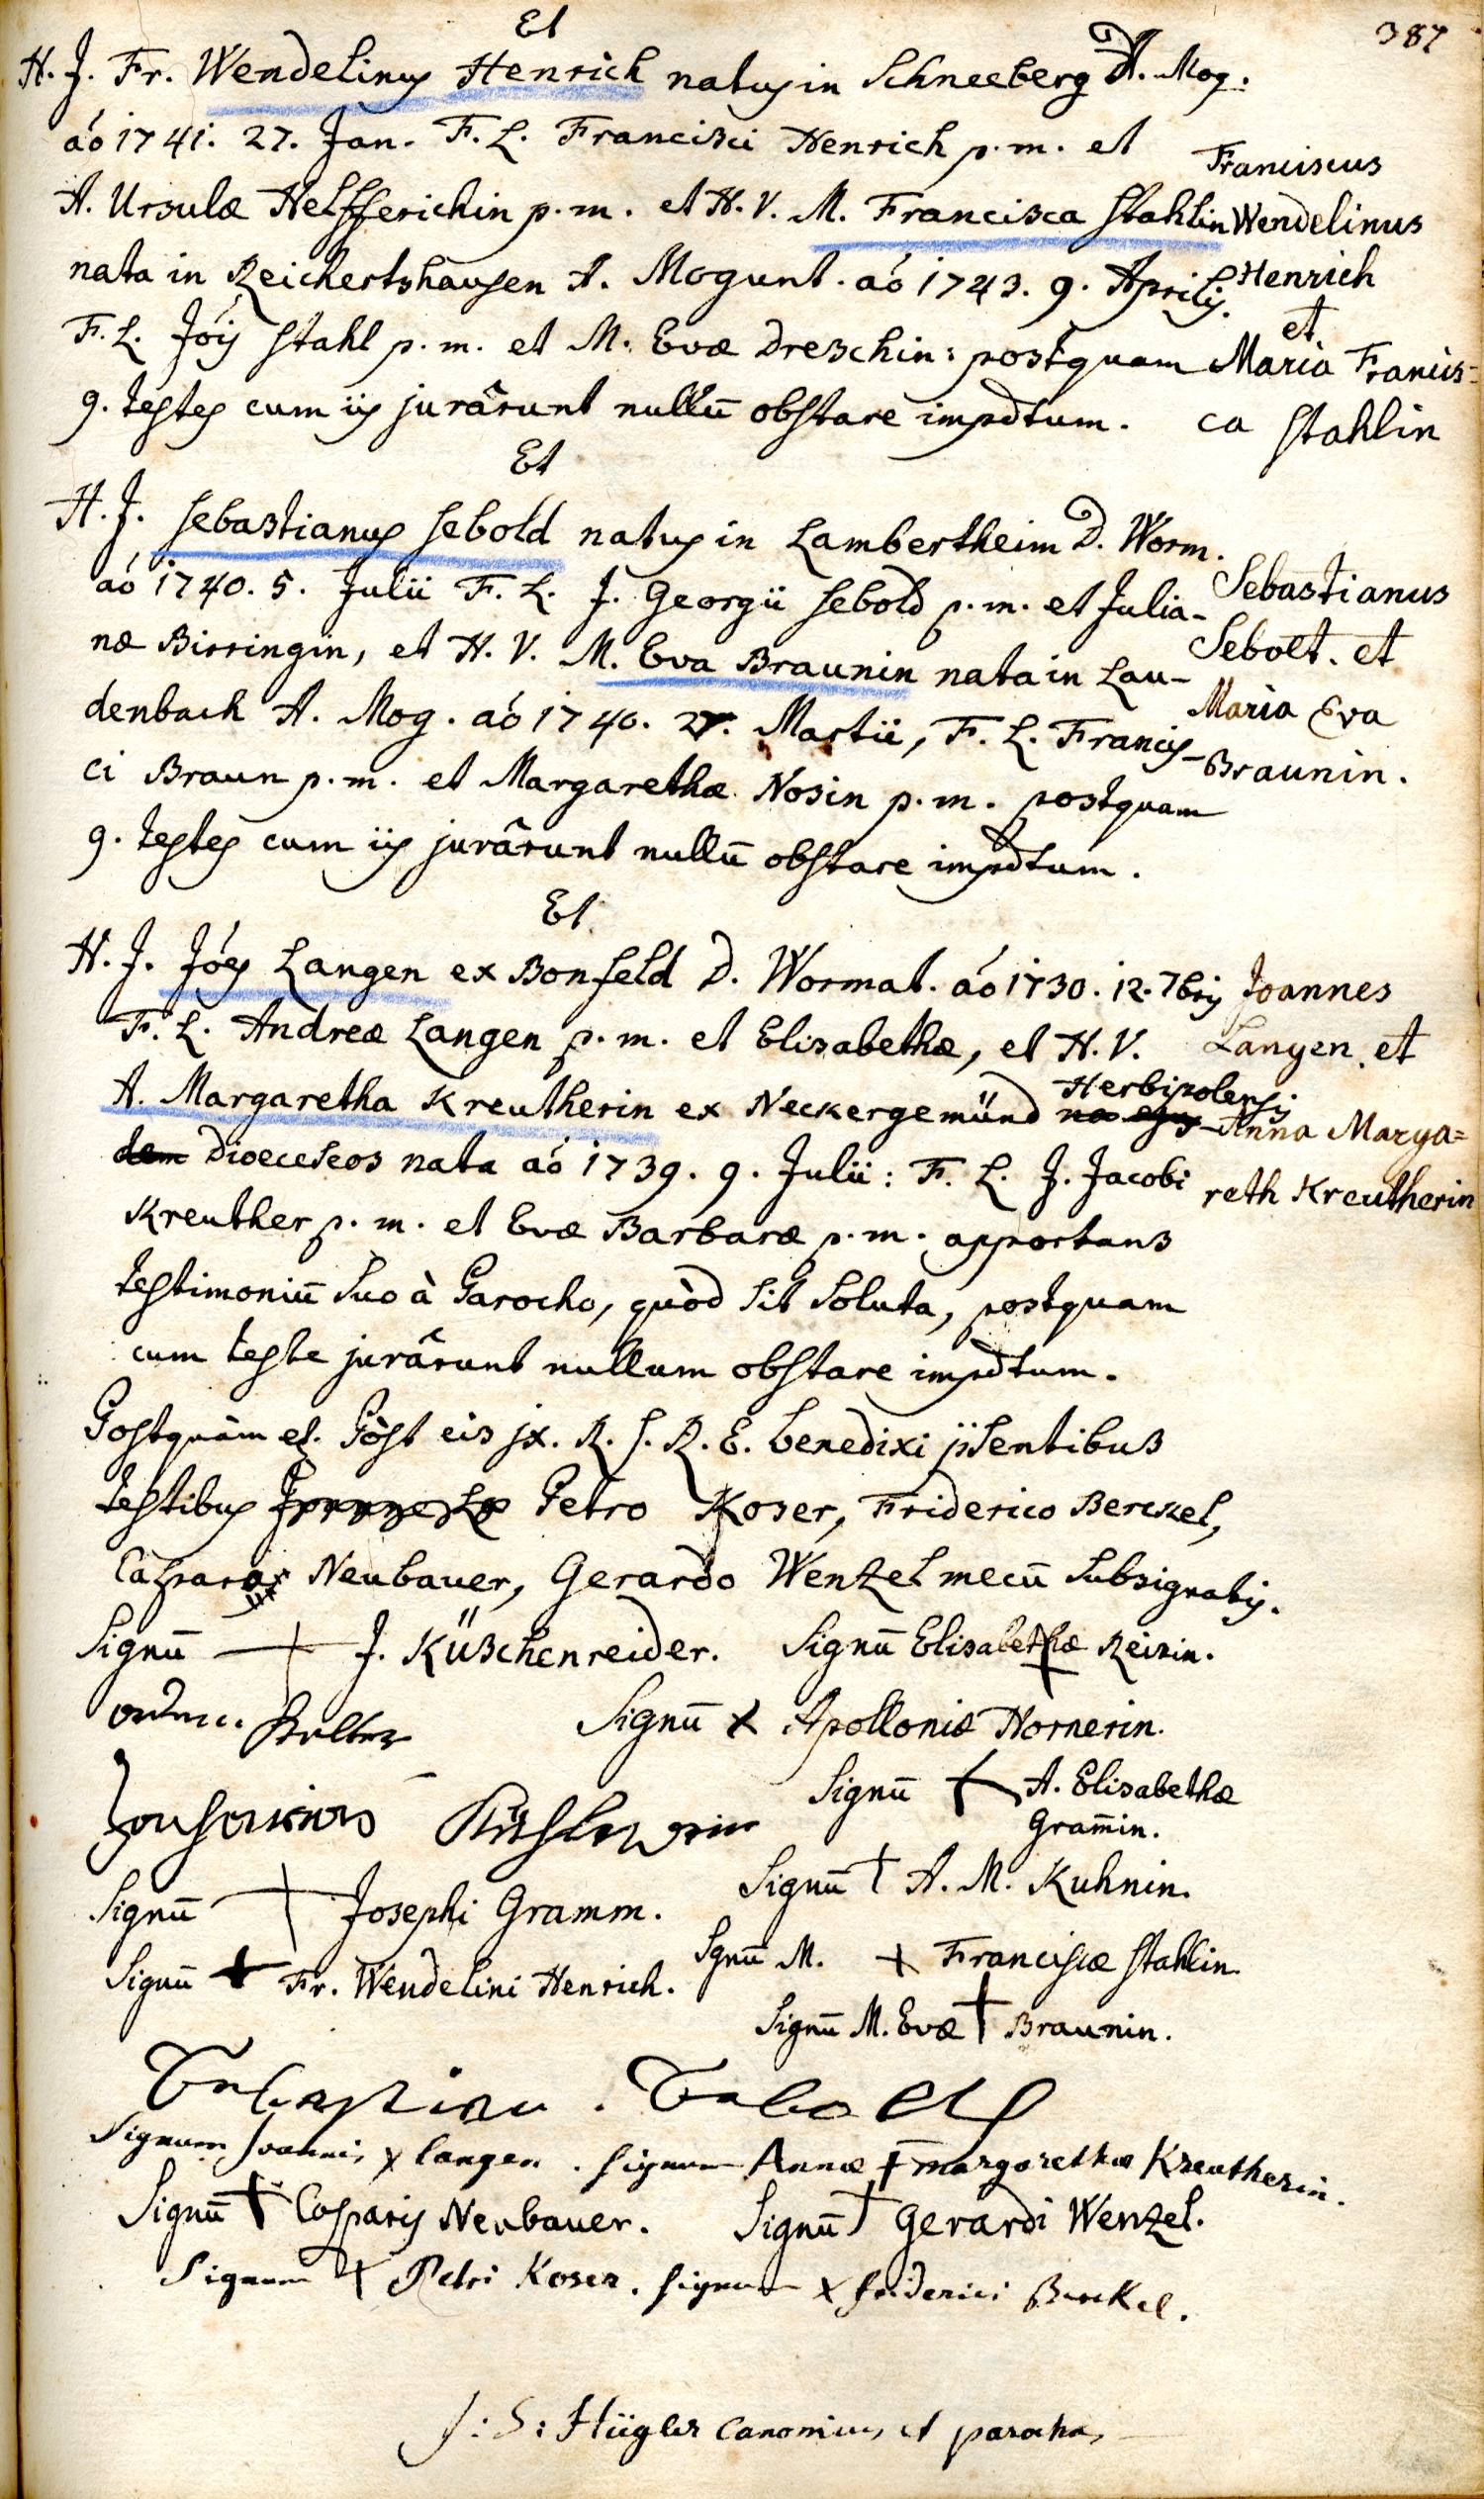 387
Et
H. J. Fr. Wendelinus Henrich natus in Schneeberg A. Mog.
aō 1741. 27. Jan. F. L. Francisci Henrich p. m. et
A. Ursulæ Helfferichin p. m. et H. V. M. Francisca Stahlin
nata in Reichertshausen A. Mogunt. aō 1743. 9. Aprilis.
F. L. Jōis Stahl p. m. et M. Evæ Dreschin: postquam
9. testes cum iis jurârunt nullū obstare impdtum.
Franciscus
Wendelinus
Henrich
et
Maria Francis-
ca Stahlin
Et
H. J. Sebastianus Sebold natus in Lambertheim D. Worm.
aō 1740. 5. Julii F. L. J. Georgii Sebold p. m. et Julia-
næ Birringin, et H. V. M. Eva Braunin nata in Lau-
denbach A. Mog. aō 1740. 27. Martii, F. L. Francis-
ci Braun p. m. et Margarethæ Nosin p. m. postquam
9. testes cum iis jurârunt nullū obstare impdtum.
Sebastianus
Seboet. et
Maria Eva
Braunin.
Et
H. J. Jōes Langen ex Bonfeld D. Wormat. aō 1730. 12. 7bris
F. L. Andreæ Langen p. m. et Elisabethæ, et H. V.
A. Margaretha Kreutherin ex Neckergemünd Herbipolensis
dem Dioeceseos nata aō 1739. 9. Julii: F. L. J. Jacobi
Kreuther p. m. et Evæ Barbaræ p. m. apportans
testimoniū suo à Parocho, quòd sit soluta, postquam
cum teste jurârunt nullum obstare impdtum.
Joannes
Langen. et
Anna Marga=
reth Kreutherin
Postquàm et. Pòst eis jx. R. S. R. E. benedixi p̄sentibus
testibus Petro Koser, Friderico Berckel,
Casparo Neubauer, Gerardo Wenzel mecū subsignatis.
Signū + J. Küschenreider. Signū Elisabethæ + Reisin.
Signū x Apolloniæ Hornerin.
Signū + A. Elisabethæ
Gram̄in.
Signū + Josephi Gramm. Signū + A. M. Kuhnin.
Signū + Fr. Wendelini Henrich. Sgnū M. + Franciscæ Stahlin
Signū M. Evæ + Braunin.
Sebastian. Seboldt
Signum Joannis x Langen. Signum Annæ + margarethæ Kreutherin.
Signū + Casparis Neubauer. Signū + Gerardi Wenzel.
Signum + Petri Koser. Signum x friderici Berckel.
J: S: Hügler Canonicus et parochus